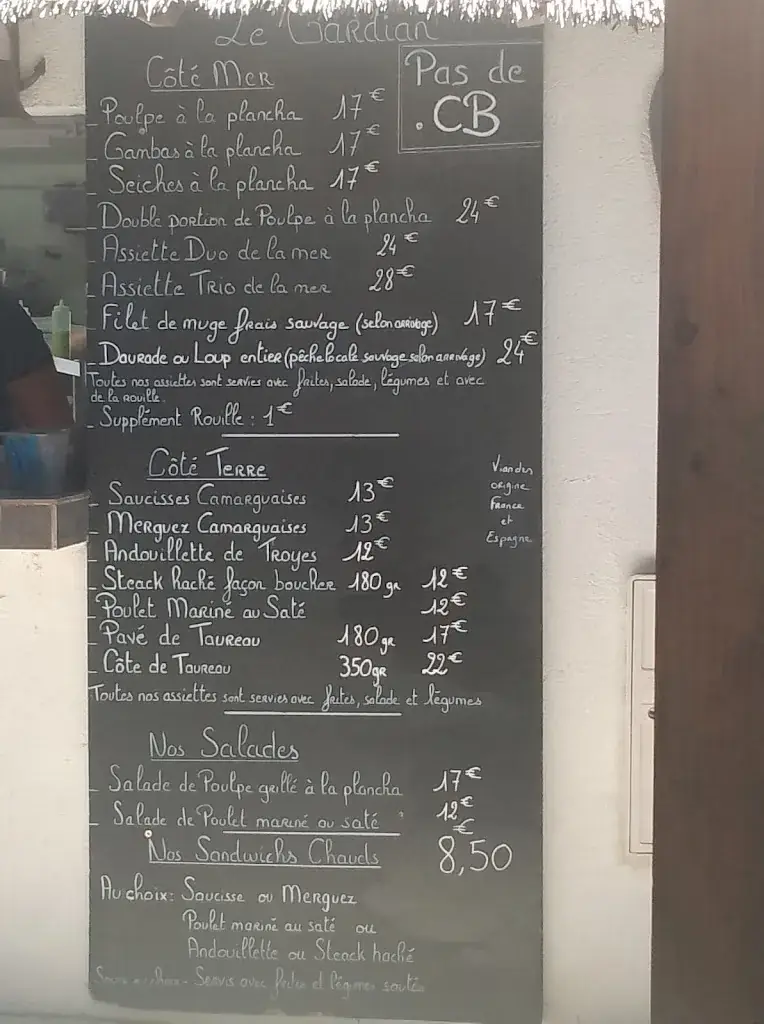 Le Gardian
Pas de
. CB
Côté Mer
- Poulpe à la plancha 17€
- Gambas à la plancha 17€
- Seiches à la plancha 17€
- Double portion de Poulpe à la plancha 24€
- Assiette Duo de la mer 24€
- Assiette Trio de la mer 28€
- Filet de muge frais sauvage (selon arrivage) 17€
- Daurade ou Loup entier (pêche locale sauvage selon arrivage) 24€
Toutes nos assiettes sont servies avec frites, salade, légumes et avec
de la rouille.
- Supplément Rouille : 1€
Côté Terre
Viandes
origine
France
et
Espagne
- Saucisses Camarguaises 13€
- Merguez Camarguaises 13€
- Andouillette de Troyes 12€
- Steack haché façon boucher 180gr 12€
- Poulet Mariné au Saté 12€
- Pavé de Taureau 180gr 17€
- Côte de Taureau 350gr 22€
Toutes nos assiettes sont servies avec frites, salade et légumes
Nos Salades
- Salade de Poulpe grillé à la plancha 17€
- Salade de Poulet mariné au saté 12€
Nos Sandwichs Chauds 8,50€
Au choix: Saucisse ou Merguez
Poulet mariné au saté ou
Andouillette ou Steack haché
Servis avec frites et légumes